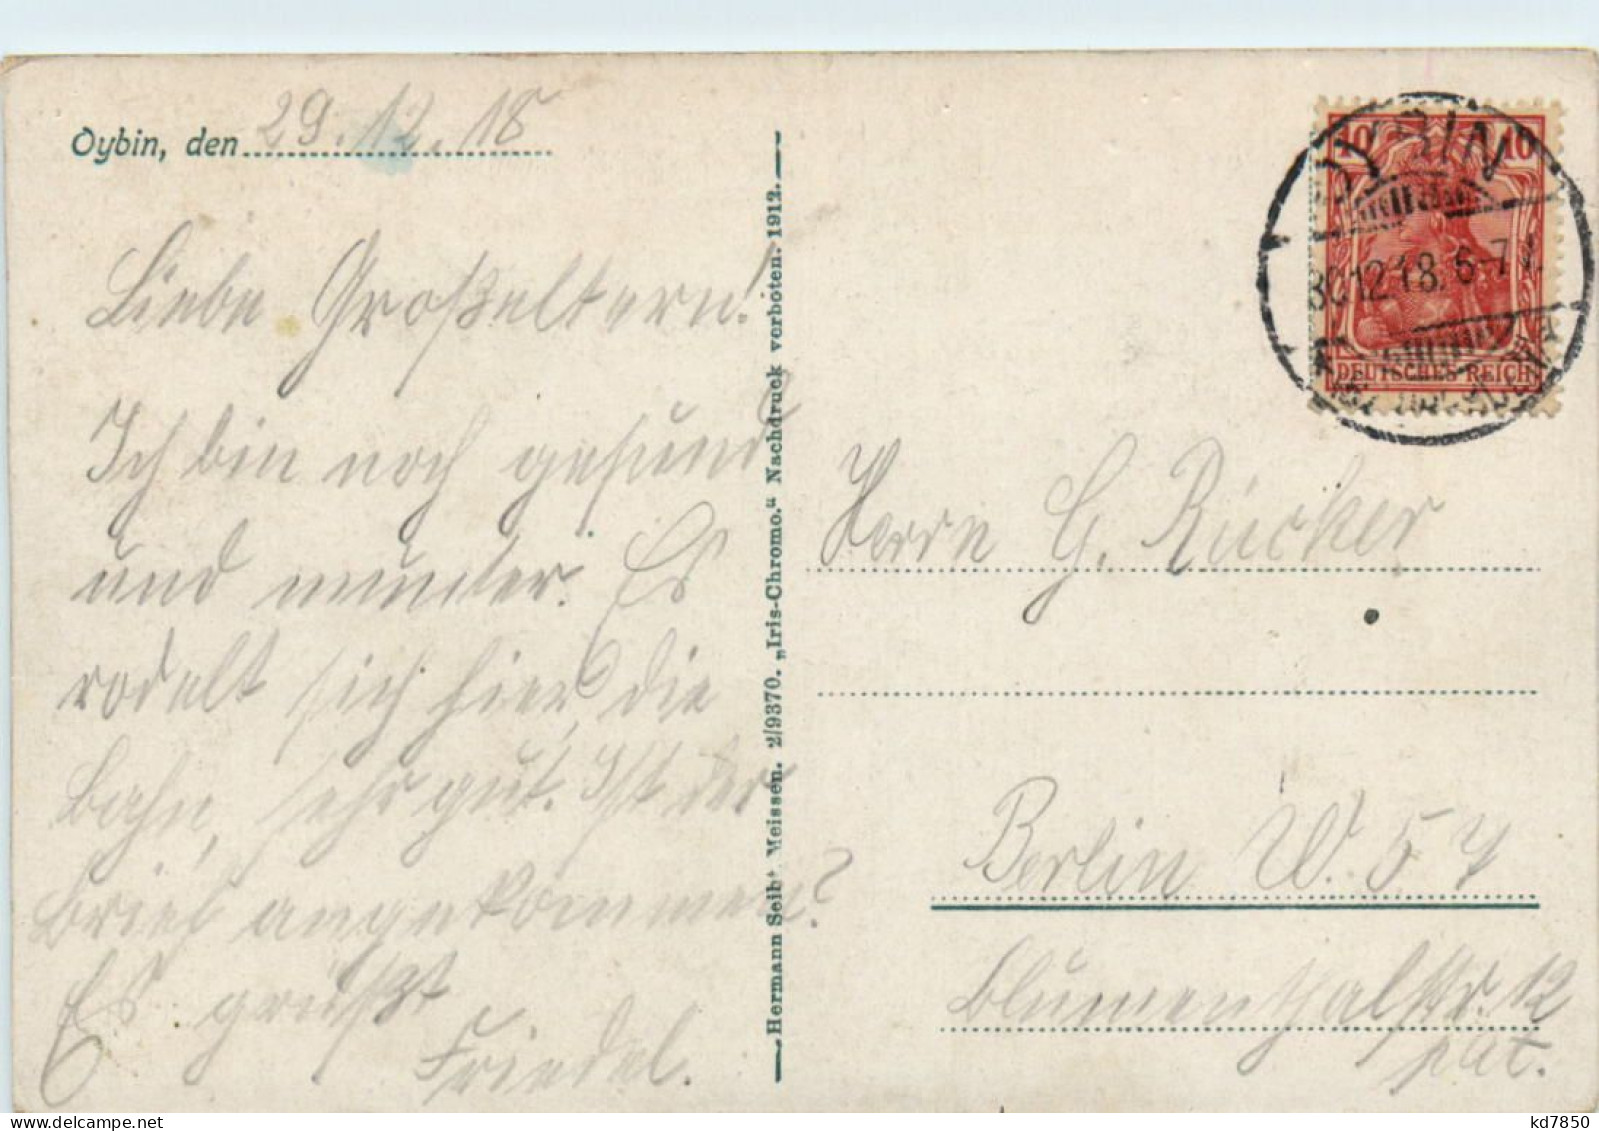 Oybin, den 29.12.18
Liebe Großeltern!
Ich bin noch gesund
und munter. Es
rodelt sich hier, die
Bahn, sehr gut. Ist der
Brief angekommen?
Es grüßt
Friedel.
Hermann Seib Meissen. 2/9370. „Iris-Chromo.“ Nachdruck verboten. 1912.
OYBIN
30.12.18. 6-7
10 10
DEUTSCHES REICH
Herrn G. Rücker
Berlin W. 57
Blumenthalstr. 12
kd7850